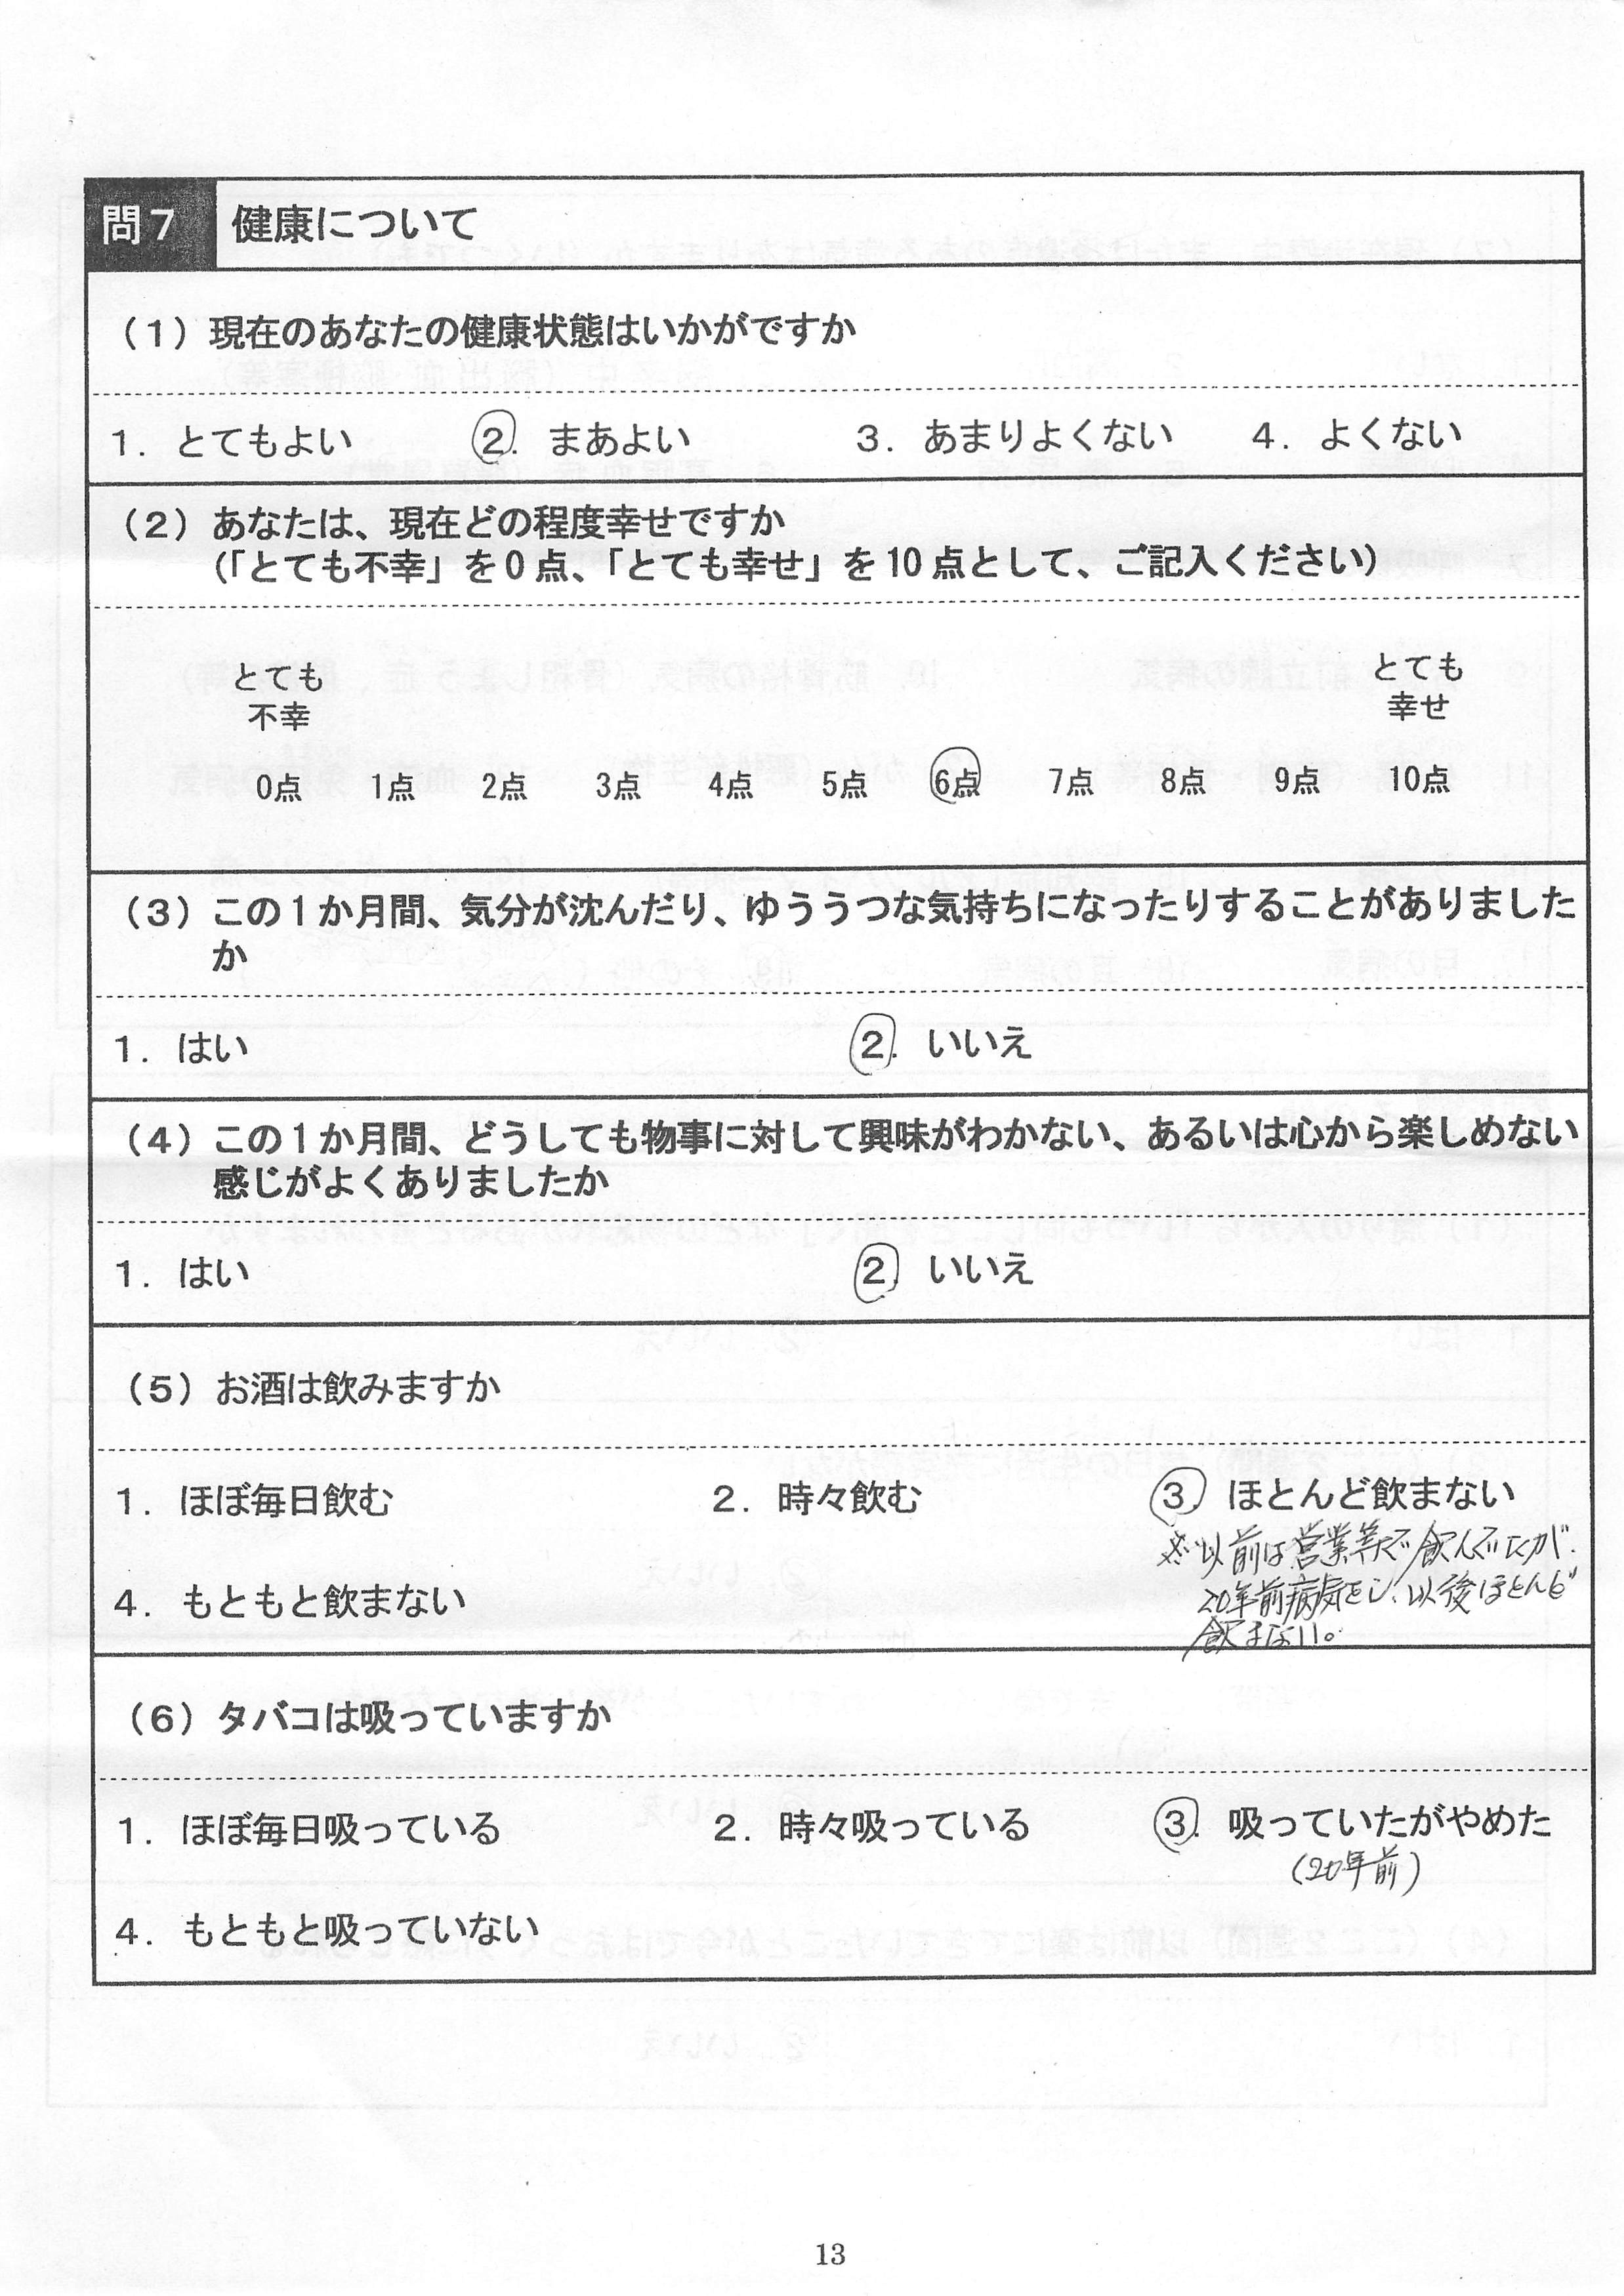 問7 健康について
（1）現在のあなたの健康状態はいかがですか
1．とてもよい 2．まあよい 3．あまりよくない 4．よくない
（2）あなたは、現在どの程度幸せですか
（「とても不幸」を0点、「とても幸せ」を10点として、ご記入ください）
とても とても
不幸 幸せ
0点 1点 2点 3点 4点 5点 6点 7点 8点 9点 10点
（3）この1か月間、気分が沈んだり、ゆううつな気持ちになったりすることがありました
か
1．はい 2．いいえ
（4）この1か月間、どうしても物事に対して興味がわかない、あるいは心から楽しめない
感じがよくありましたか
1．はい 2．いいえ
（5）お酒は飲みますか
1．ほぼ毎日飲む 2．時々飲む 3．ほとんど飲まない
※以前は営業等で飲んでたが、
20年前病気をし、以後ほとんど
飲まない。
4．もともと飲まない
（6）タバコは吸っていますか
1．ほぼ毎日吸っている 2．時々吸っている 3．吸っていたがやめた
（20年前）
4．もともと吸っていない
13